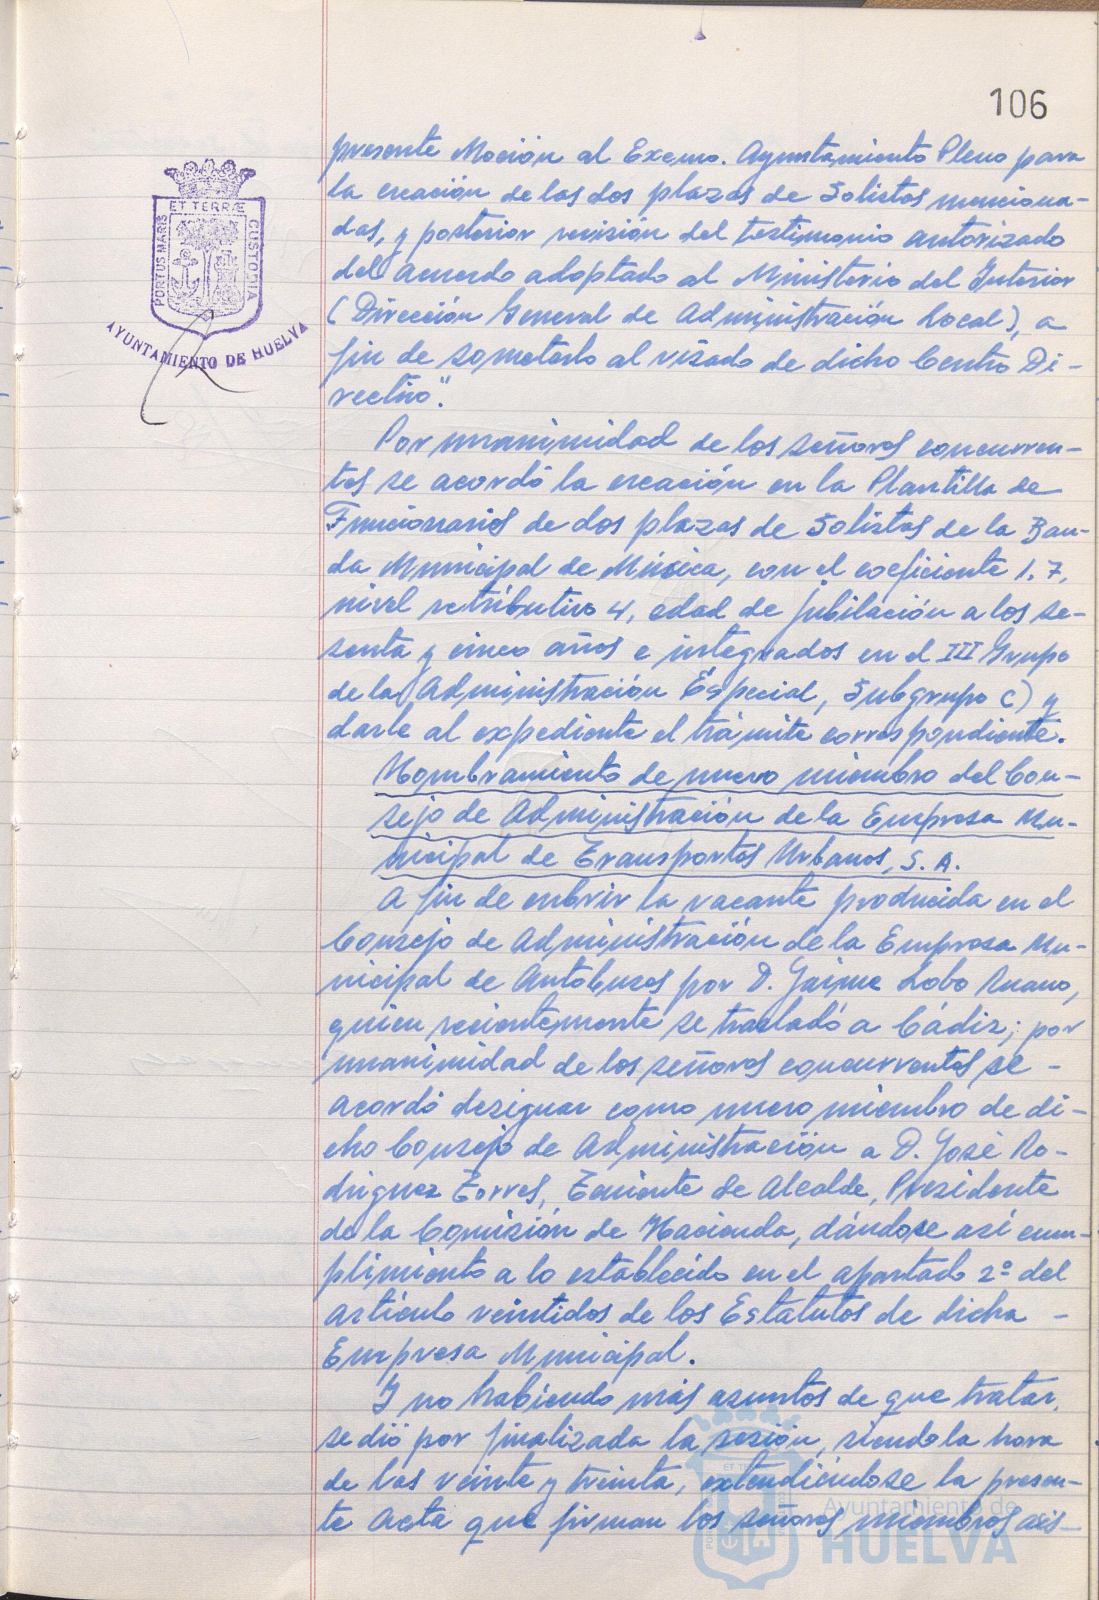 106
presente Moción al Excmo. Ayuntamiento Pleno para
la creación de las dos plazas de Solistas menciona-
das, y posterior remisión del testimonio autorizado
del acuerdo adoptado al Ministerio del Interior
(Dirección General de Administración Local), a
fin de someterlo al visado de dicho Centro Di-
rectivo".
Por unanimidad de los señores concurren-
tes se acordó la creación en la Plantilla de
Funcionarios de dos plazas de Solistas de la Ban-
da Municipal de Música, con el coeficiente 1,7,
nivel retributivo 4, edad de jubilación a los se-
senta y cinco años e integrados en el III Grupo
de la Administración Especial, Subgrupo C) y
darle al expediente el trámite correspondiente.
Nombramiento de nuevo miembro del Con-
sejo de Administración de la Empresa Mu-
nicipal de Transportes Urbanos, S. A.
A fin de cubrir la vacante producida en el
Consejo de Administración de la Empresa Mu-
nicipal de Autobuses por D. Jaime Lobo Ruano,
quien recientemente se trasladó a Cádiz; por
unanimidad de los señores concurrentes se -
acordó designar como nuevo miembro de di-
cho Consejo de Administración a D. José Ro-
driguez Torres, Teniente de Alcalde, Presidente
de la Comisión de Hacienda, dándose así cum-
plimiento a lo establecido en el apartado 2º del
artículo veintidos de los Estatutos de dicha -
Empresa Municipal.
Y no habiendo más asuntos de que tratar,
se dió por finalizada la sesión, siendo la hora
de las veinte y treinta, extendiéndose la presen-
te Acta que firman los señores miembros asis-
PORTUS MARIS ET TERRÆ CUSTODIA
AYUNTAMIENTO DE HUELVA
Ayuntamiento de
HUELVA